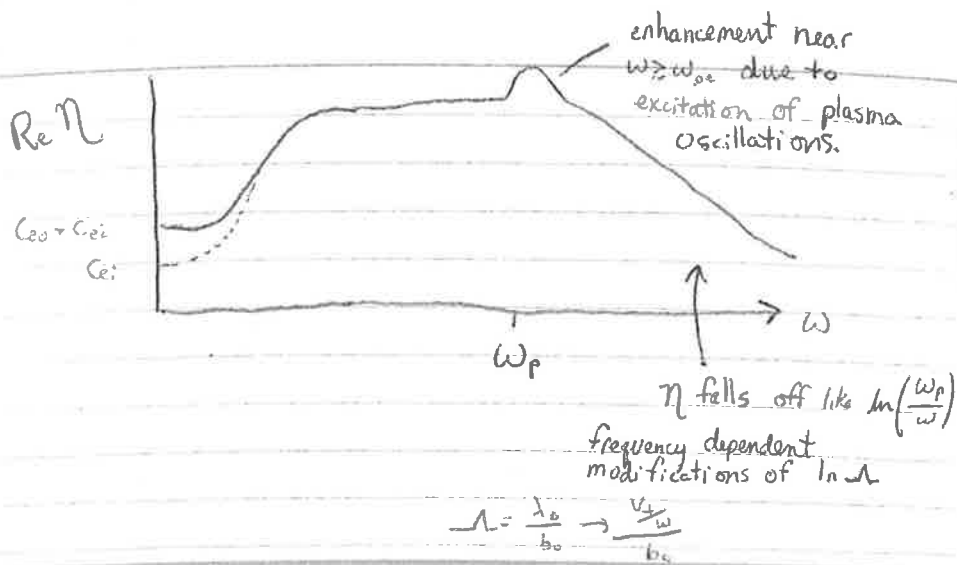 enhancement near
ω≳ω_pe due to
excitation of plasma
oscillations.
Re η
C_ei
ω
ω_p
η falls off like ln(ω_p/ω)
frequency dependent
modifications of ln Λ
Λ = λ_D/b_0 → (v_t/ω)/b_0